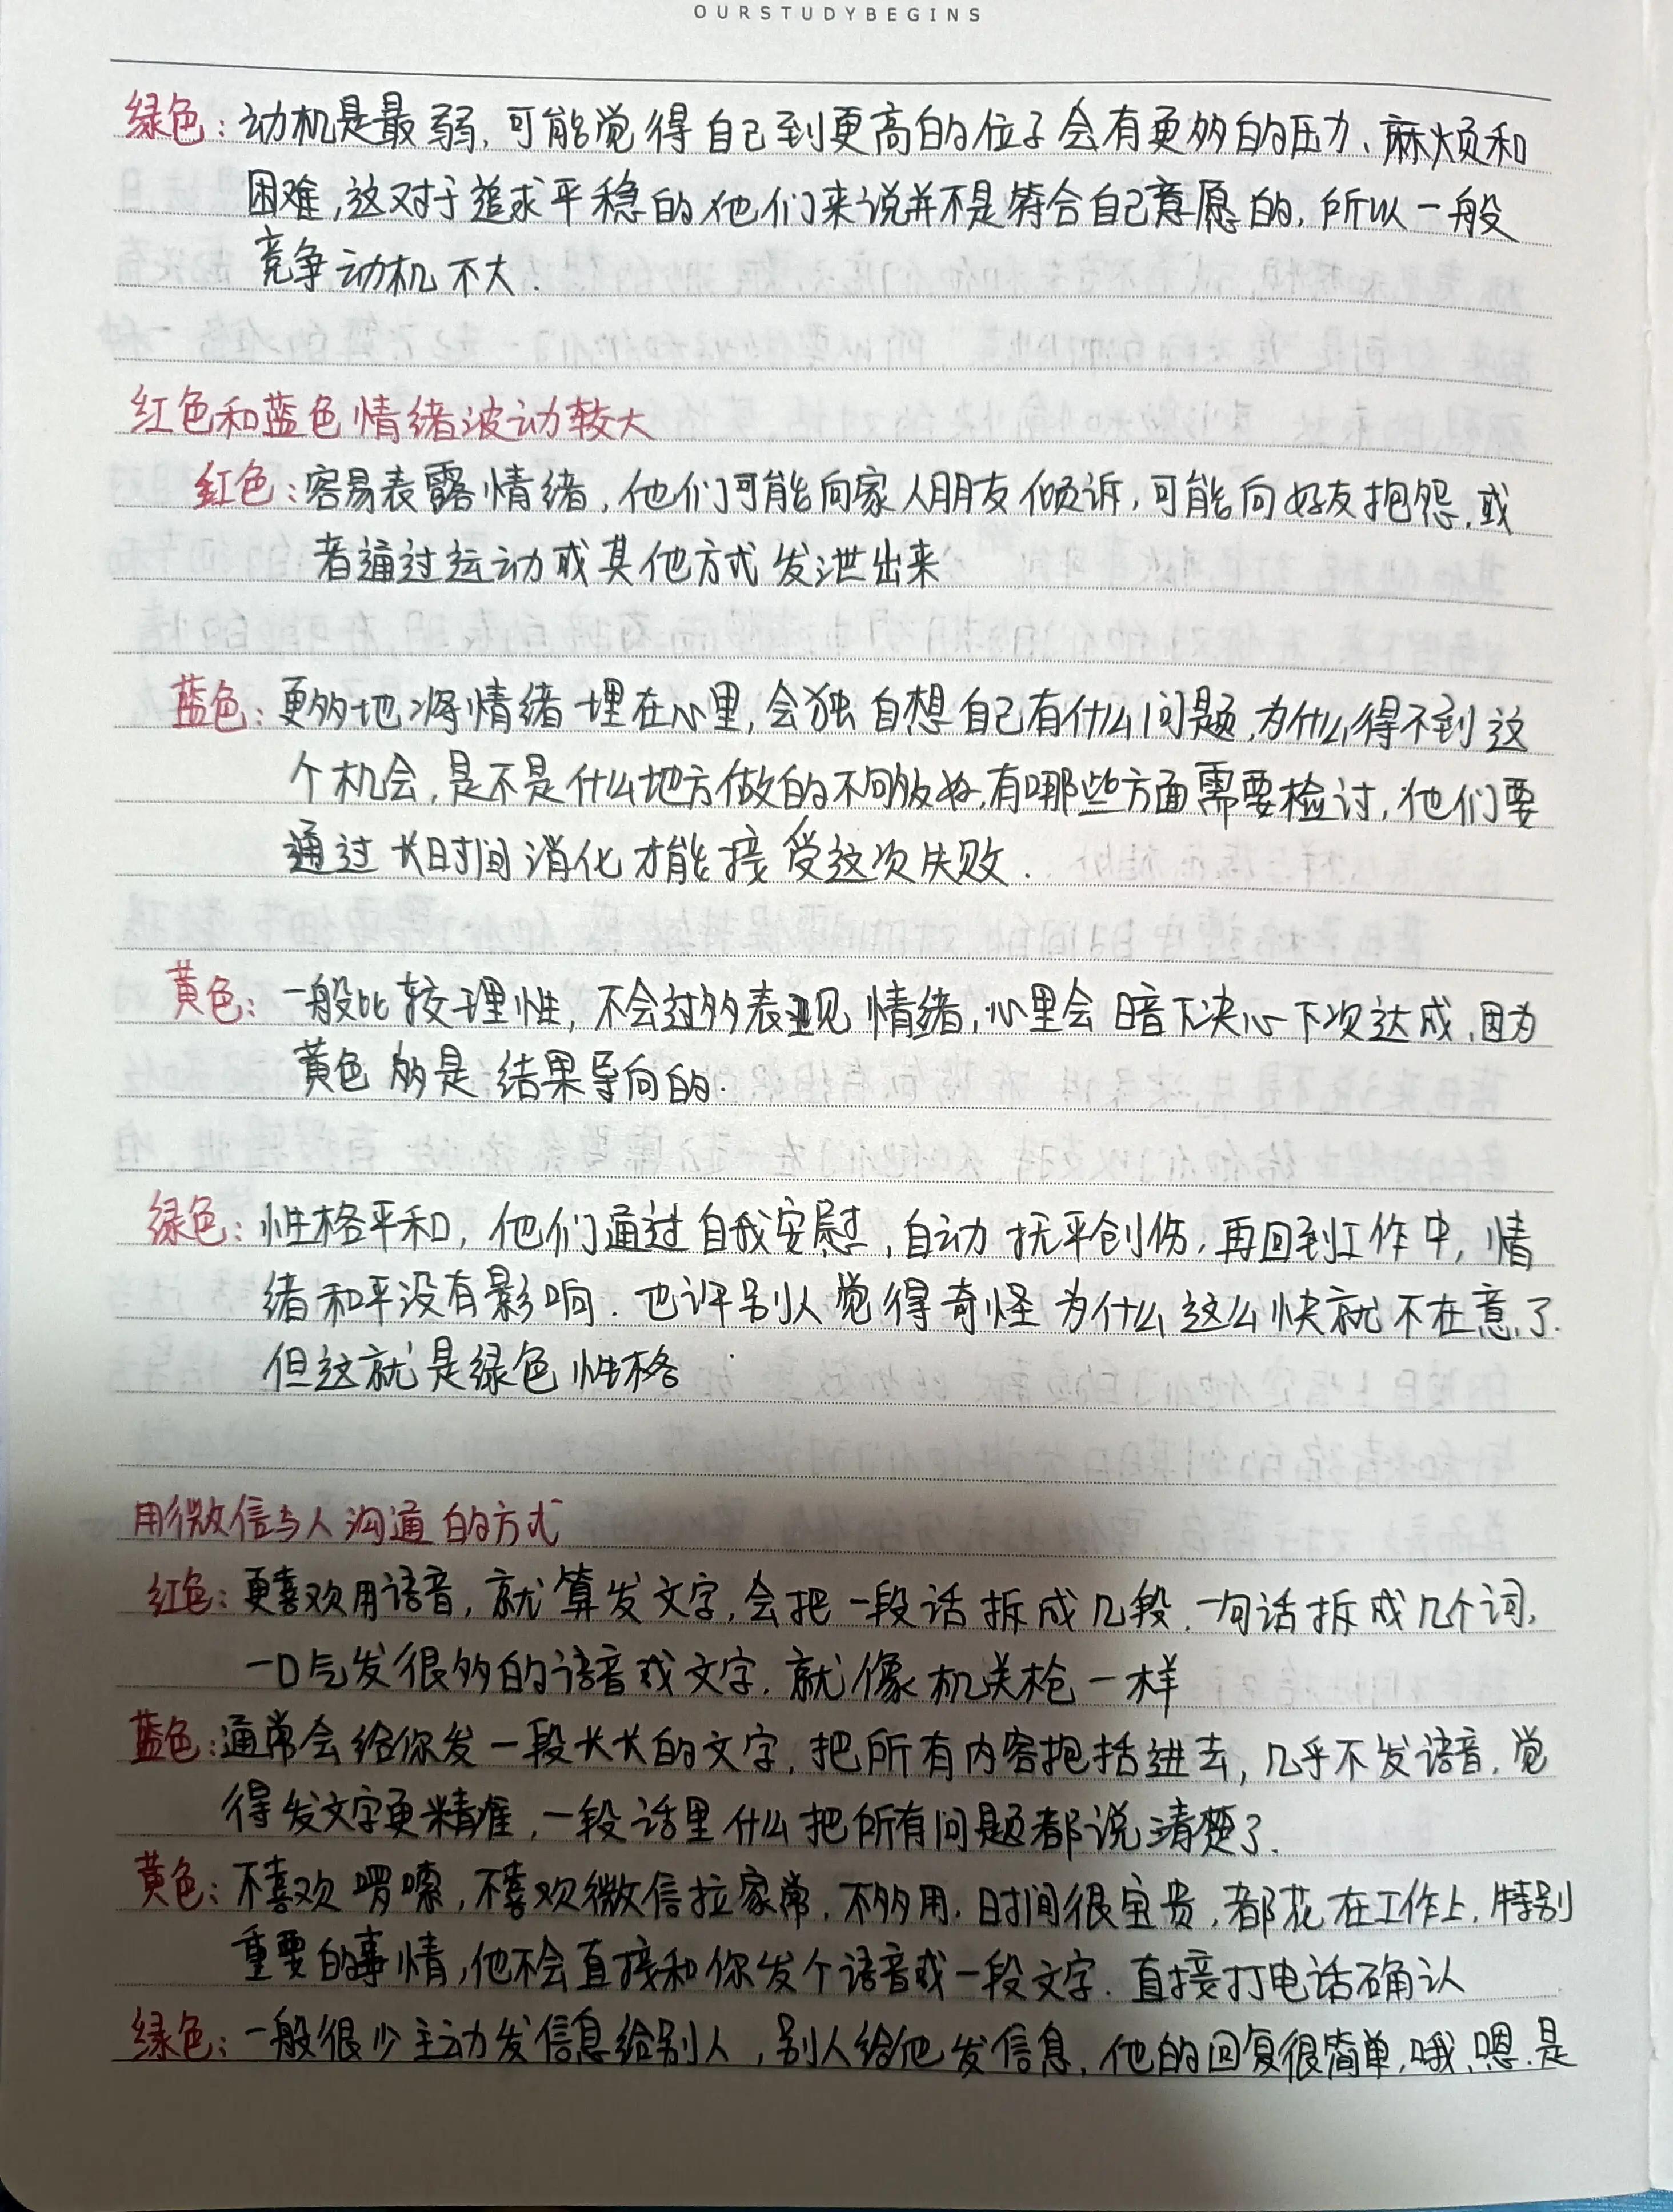 OURSTUDYBEGINS
绿色：动机是最弱，可能觉得自己到更高的位子会有更多的压力、麻烦和
困难，这对于追求平稳的他们来说并不是符合自己意愿的，所以一般
竞争动机不大.
红色和蓝色情绪波动较大
红色：容易表露情绪，他们可能向家人朋友倾诉，可能向好友抱怨，或
者通过运动或其他方式发泄出来
蓝色：更多地将情绪埋在心里，会独自想自己有什么问题，为什么得不到这
个机会，是不是什么地方做的不够好，有哪些方面需要检讨，他们要
通过长时间消化才能接受这次失败.
黄色：一般比较理性，不会过多表现情绪，心里会暗下决心下次达成，因为
黄色 是结果导向的.
绿色：性格平和，他们通过自我安慰，自动抚平创伤，再回到工作中，情
绪和平没有影响.也许别人觉得奇怪为什么这么快就不在意了.
但这就是绿色性格
用微信与人沟通的方式
红色：更喜欢用语音，就算发文字，会把一段话拆成几段，一句话拆成几个词，
一口气发很多的语音或文字.就像机关枪一样
蓝色：通常会给你发一段长长的文字，把所有内容抱括进去，几乎不发语音，觉
得发文字更精准，一段话里什么把所有问题都说清楚了.
黄色：不喜欢啰嗦，不喜欢微信拉家常，不多用，时间很宝贵，都花在工作上，特别
重要的事情，他不会直接和你发个语音或一段文字.直接打电话确认
绿色：一般很少主动发信息给别人，别人给他发信息，他的回复很简单，哦、嗯.是